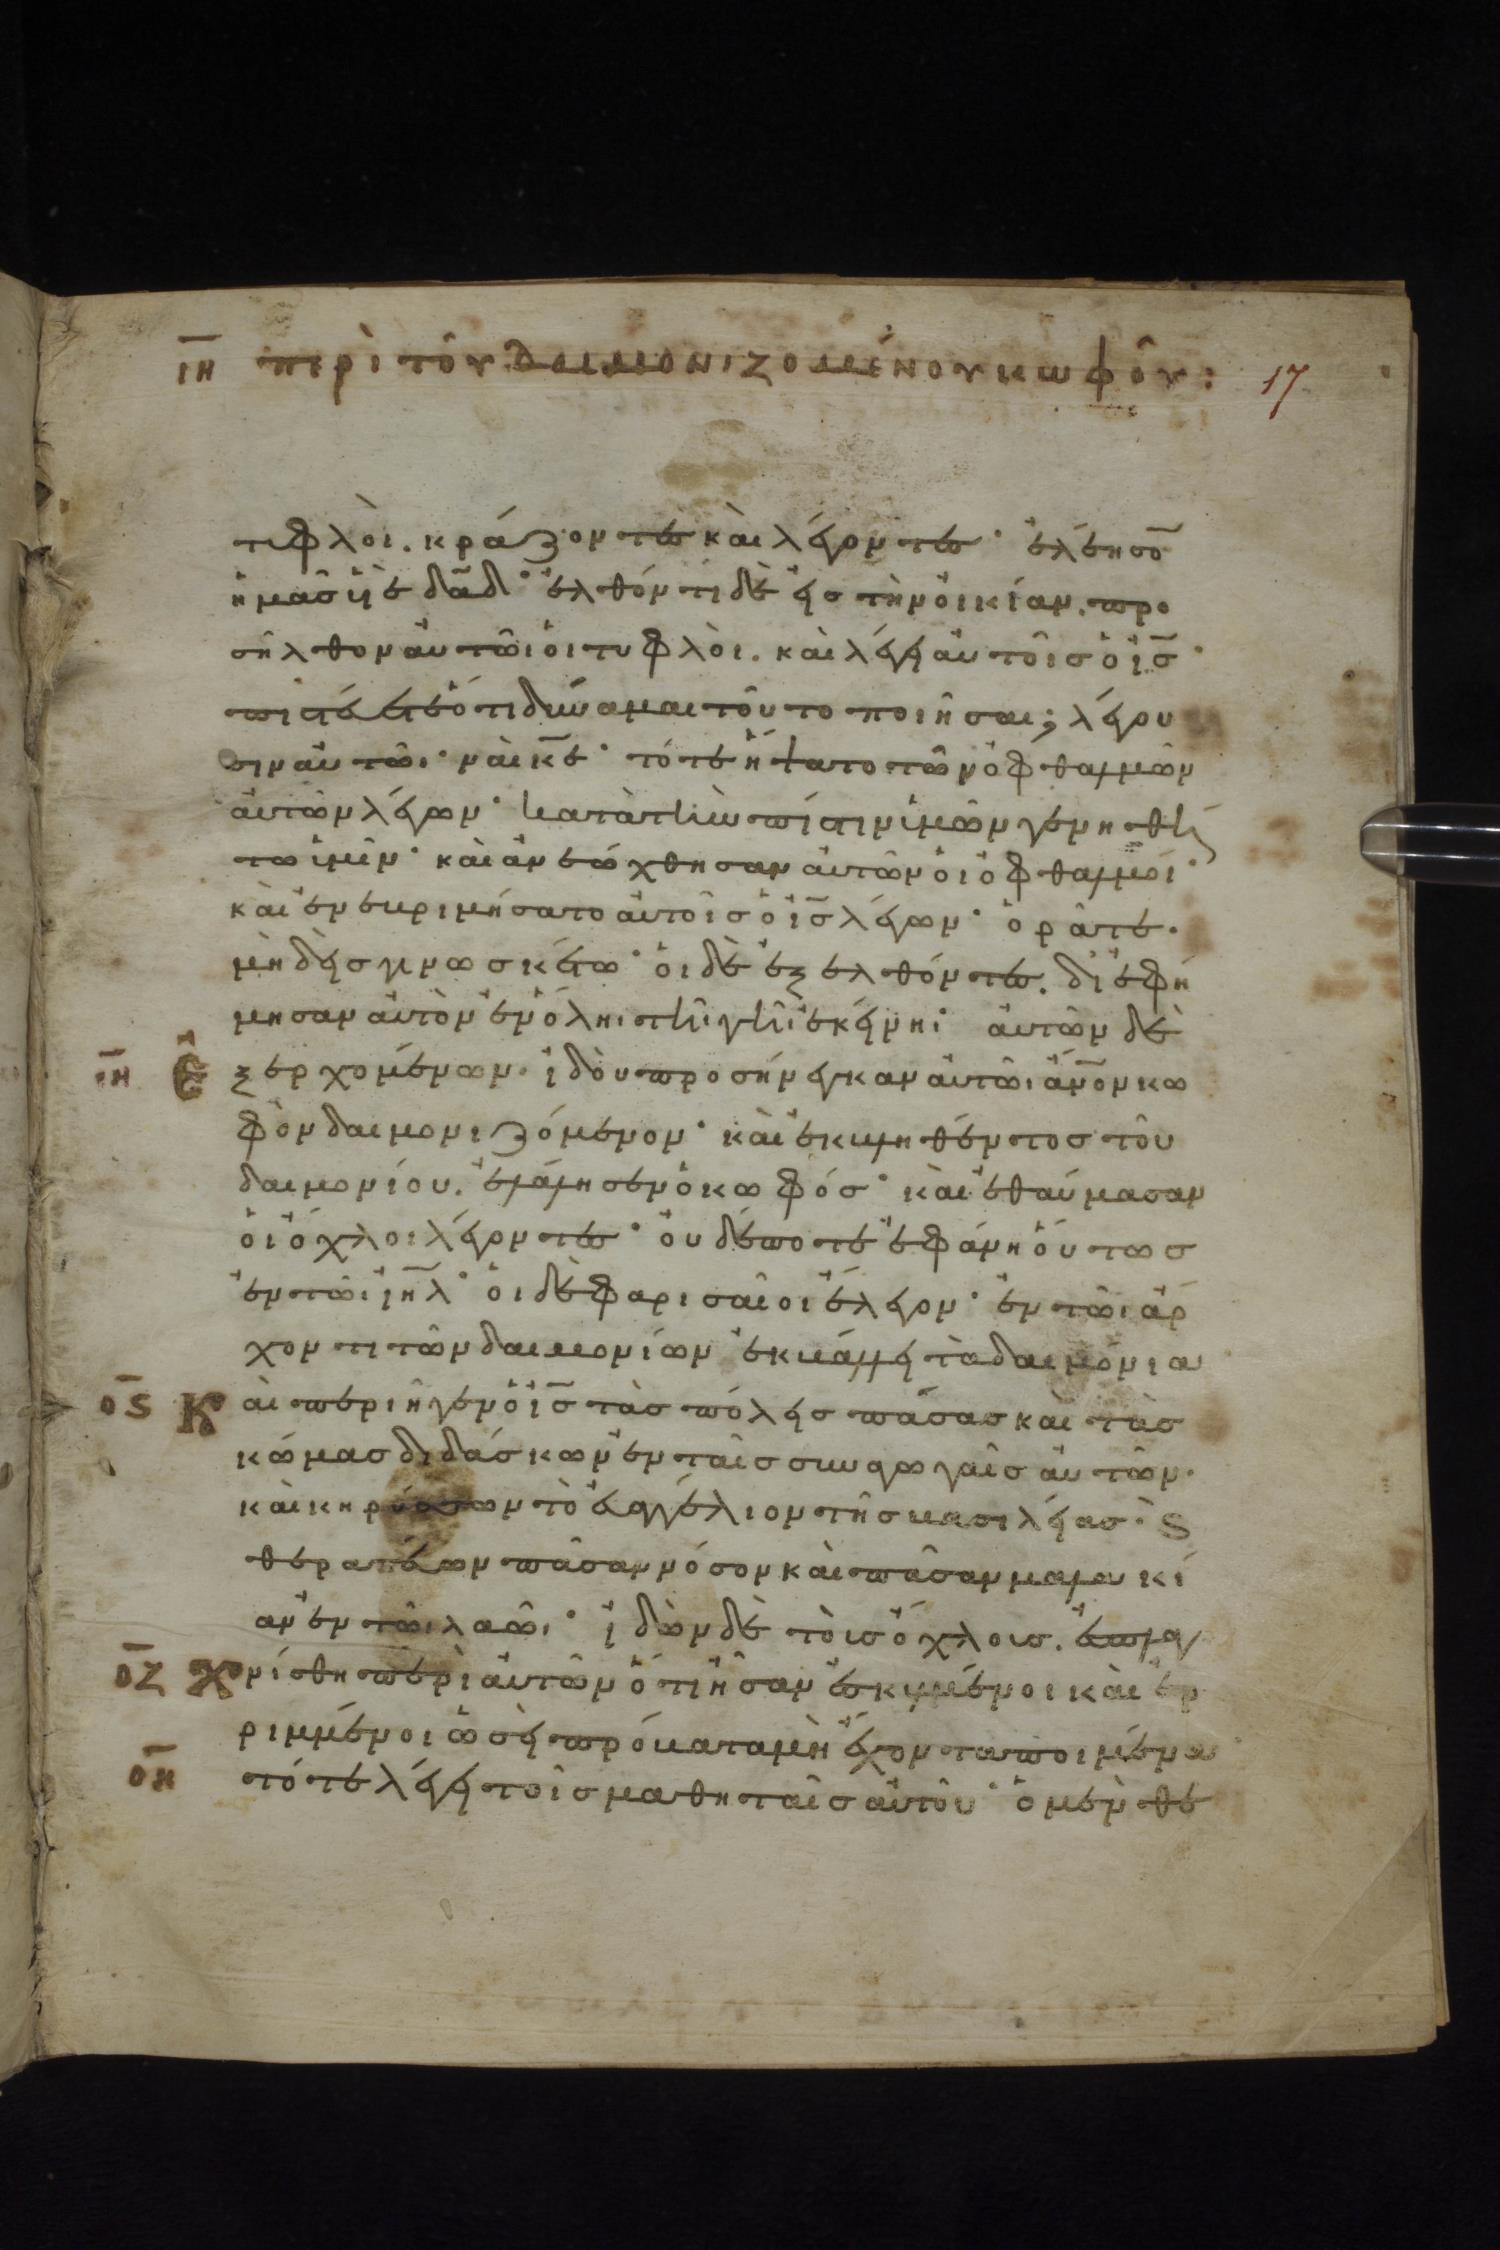 ιη περὶ τοῦ δαιμονιζομένου κωφοῦ: 17
τυφλοὶ. κράζοντες καὶ λέγοντες· ἐλέησο̄
ἡμᾶς ὑὲ δᾱδ· ἐλθόντι δὲ εἰς τὴν οἰκίαν. προ
σῆλθον αὐτῶι οἱ τυφλοὶ. καὶ λέγει αὐτοῖς ὁ ἰ̄ς·
πιστεύετε ὅτι δύναμαι τοῦτο ποιῆσαι; λέγου
σιν αὐτῶι· ναὶ κ̄ε· τότε ἥψατο τῶν ὀφθαλμῶν
αὐτῶν λέγων· κατὰ τὴν πίστιν ὑμῶν γενηθή
τω ὑμῖν· καὶ ἀνεώχθησαν αὐτῶν οἱ ὀφθαλμοί·
καὶ ἐνεβριμήσατο αὐτοῖς ὁ ἰ̄ς λέγων· ὁρᾶτε.
μηδεὶς γινωσκέτω· οἱ δὲ ἐξελθόντες. διεφή
μησαν αὐτὸν ἐν ὅληι τῆι γῆι ἐκείνηι· αὐτῶν δὲ
ιη Ἐξερχομένων. ἰδοὺ προσήνεγκαν αὐτῶι ἄν̄ον κω
φὸν δαιμονιζόμενον· καὶ ἐκβληθέντος τοῦ
δαιμονίου. ἐλάλησεν ὁ κωφός· καὶ ἐθαύμασαν
οἱ ὄχλοι λέγοντες· οὐδέποτε ἐφάνη οὕτως
ἐν τῶι ἰη̄λ· οἱ δὲ φαρισαῖοι ἔλεγον· ἐν τῶι ἄρ
χοντι τῶν δαιμονίων ἐκβάλλει τὰ δαιμόνια
ος Καὶ περιῆγεν ὁ ἰ̄ς τὰς πόλεις πάσας καὶ τὰς
κώμας διδάσκων ἐν ταῖς συναγωγαῖς αὐτῶν.
καὶ κηρύσσων τὸ εὐαγγέλιον τῆς βασιλείας. ϗ
θεραπεύων πᾶσαν νόσον καὶ πᾶσαν μαλακί
αν ἐν τῶι λαῶι· ἰδὼν δὲ τοὺς ὄχλους. ἐσπλαγ
οζ χνίσθη περὶ αὐτῶν ὅτι ἦσαν ἐσκυλμένοι καὶ ἐρ
ριμμένοι ὡσεὶ πρόβατα μὴ ἔχοντα ποιμένα·
οη τότε λέγει τοῖς μαθηταῖς αὐτοῦ· ὁ μὲν θε